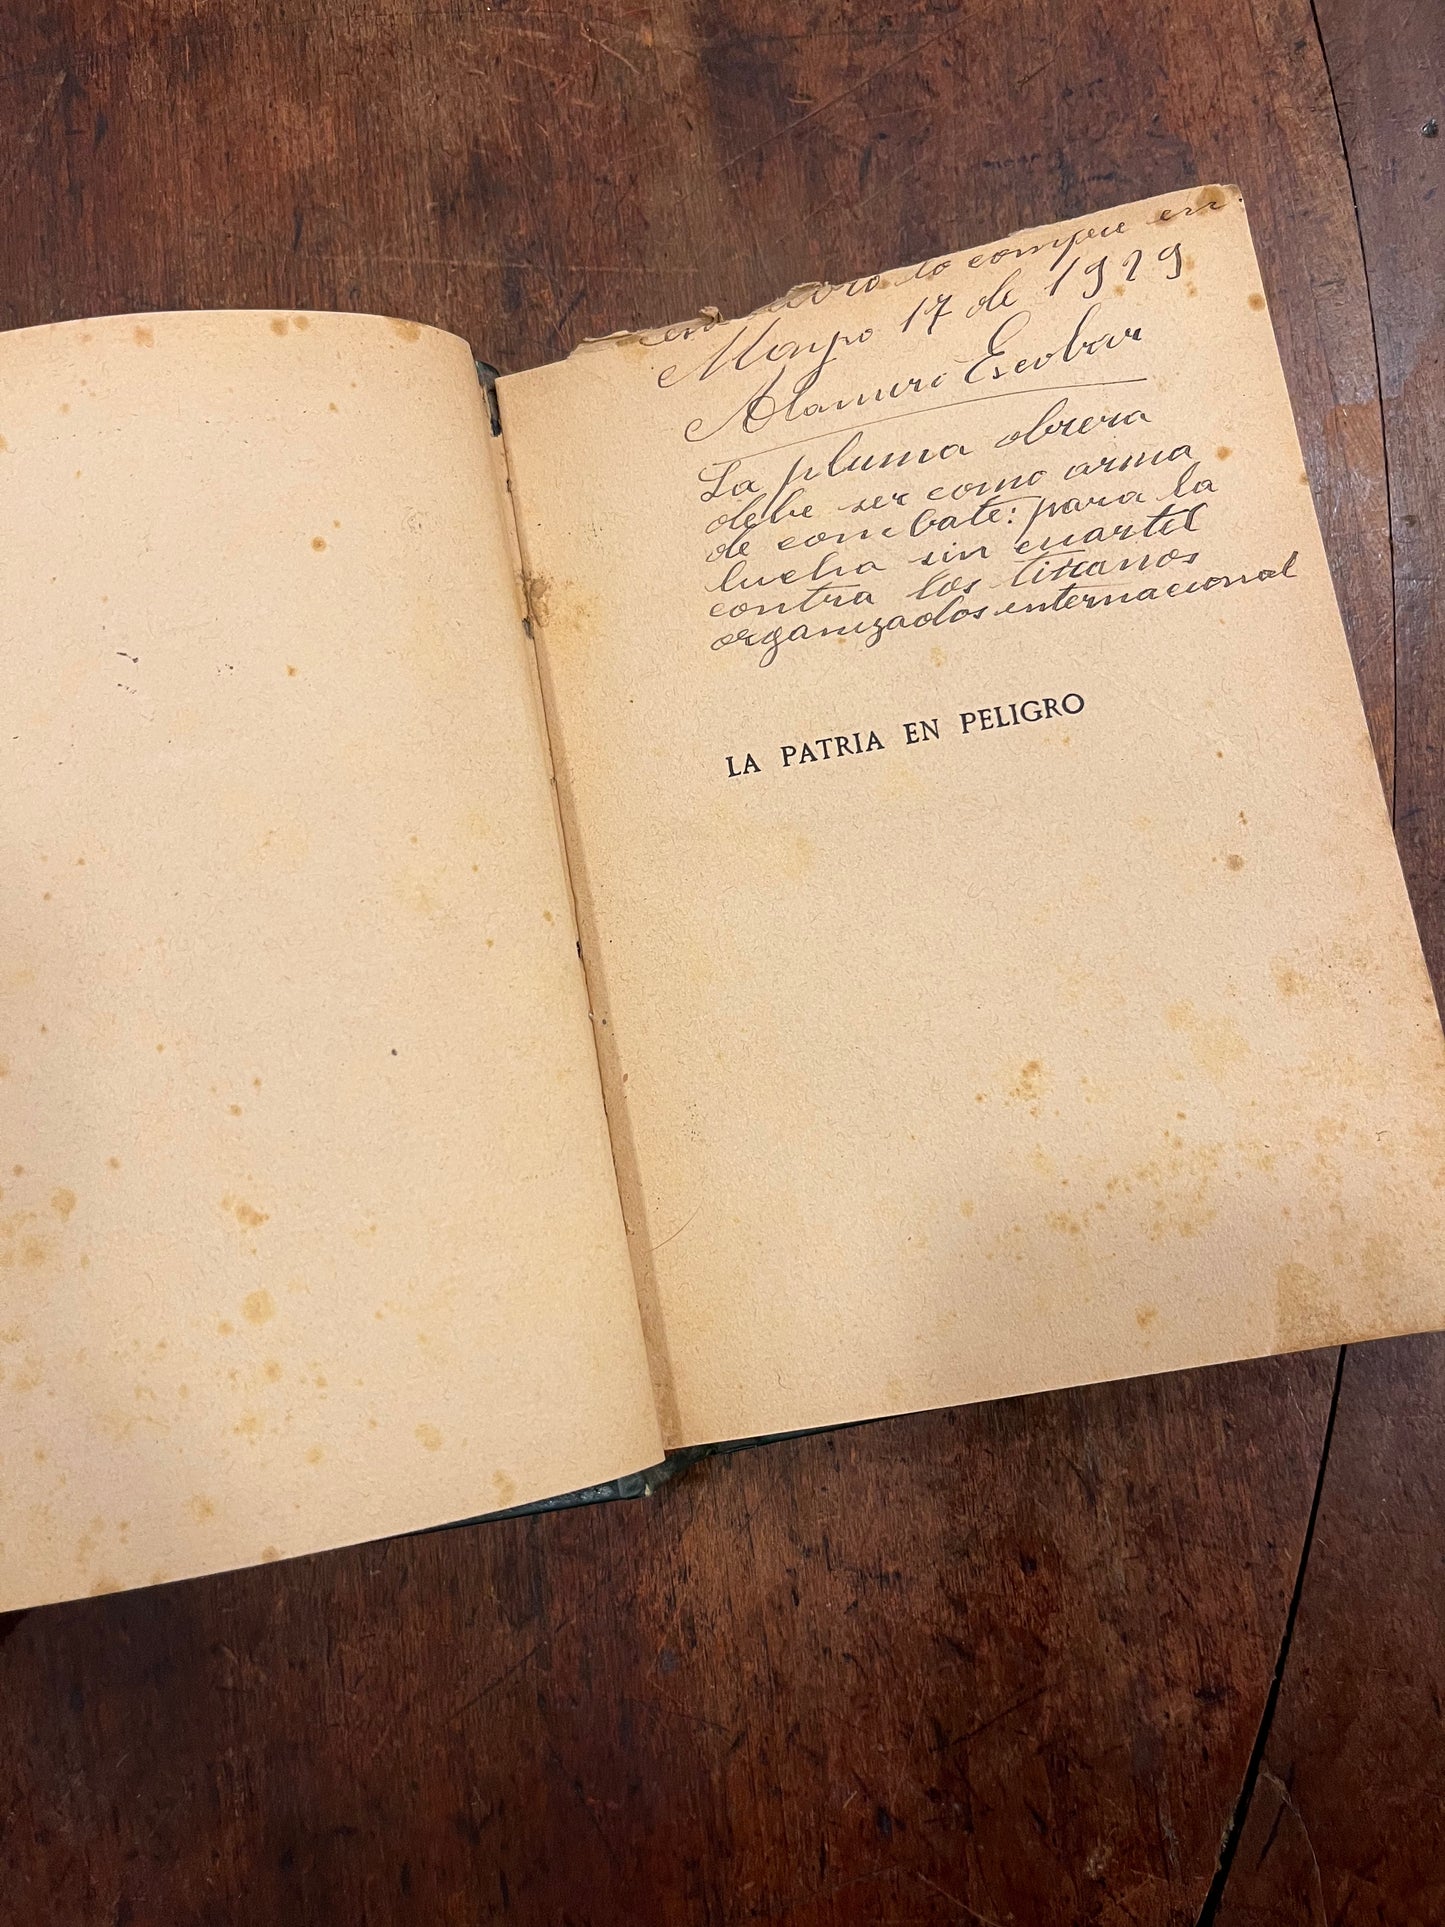 este libro lo compre en
Mayo 17 de 1929
Escobar
La pluma obrera
debe ser como arma
de combate: para la
lucha sin cuartel
contra los tiranos
organizados internacional
LA PATRIA EN PELIGRO